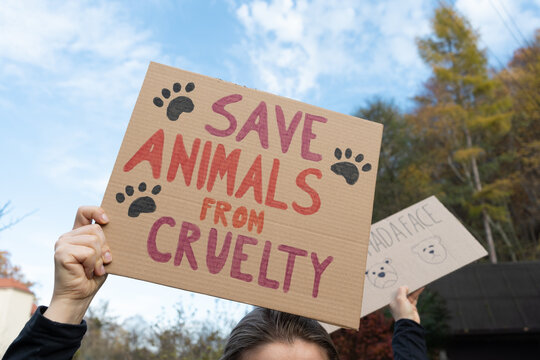 SAVE
ANIMALS
FROM
CRUELTY
HAD A FACE